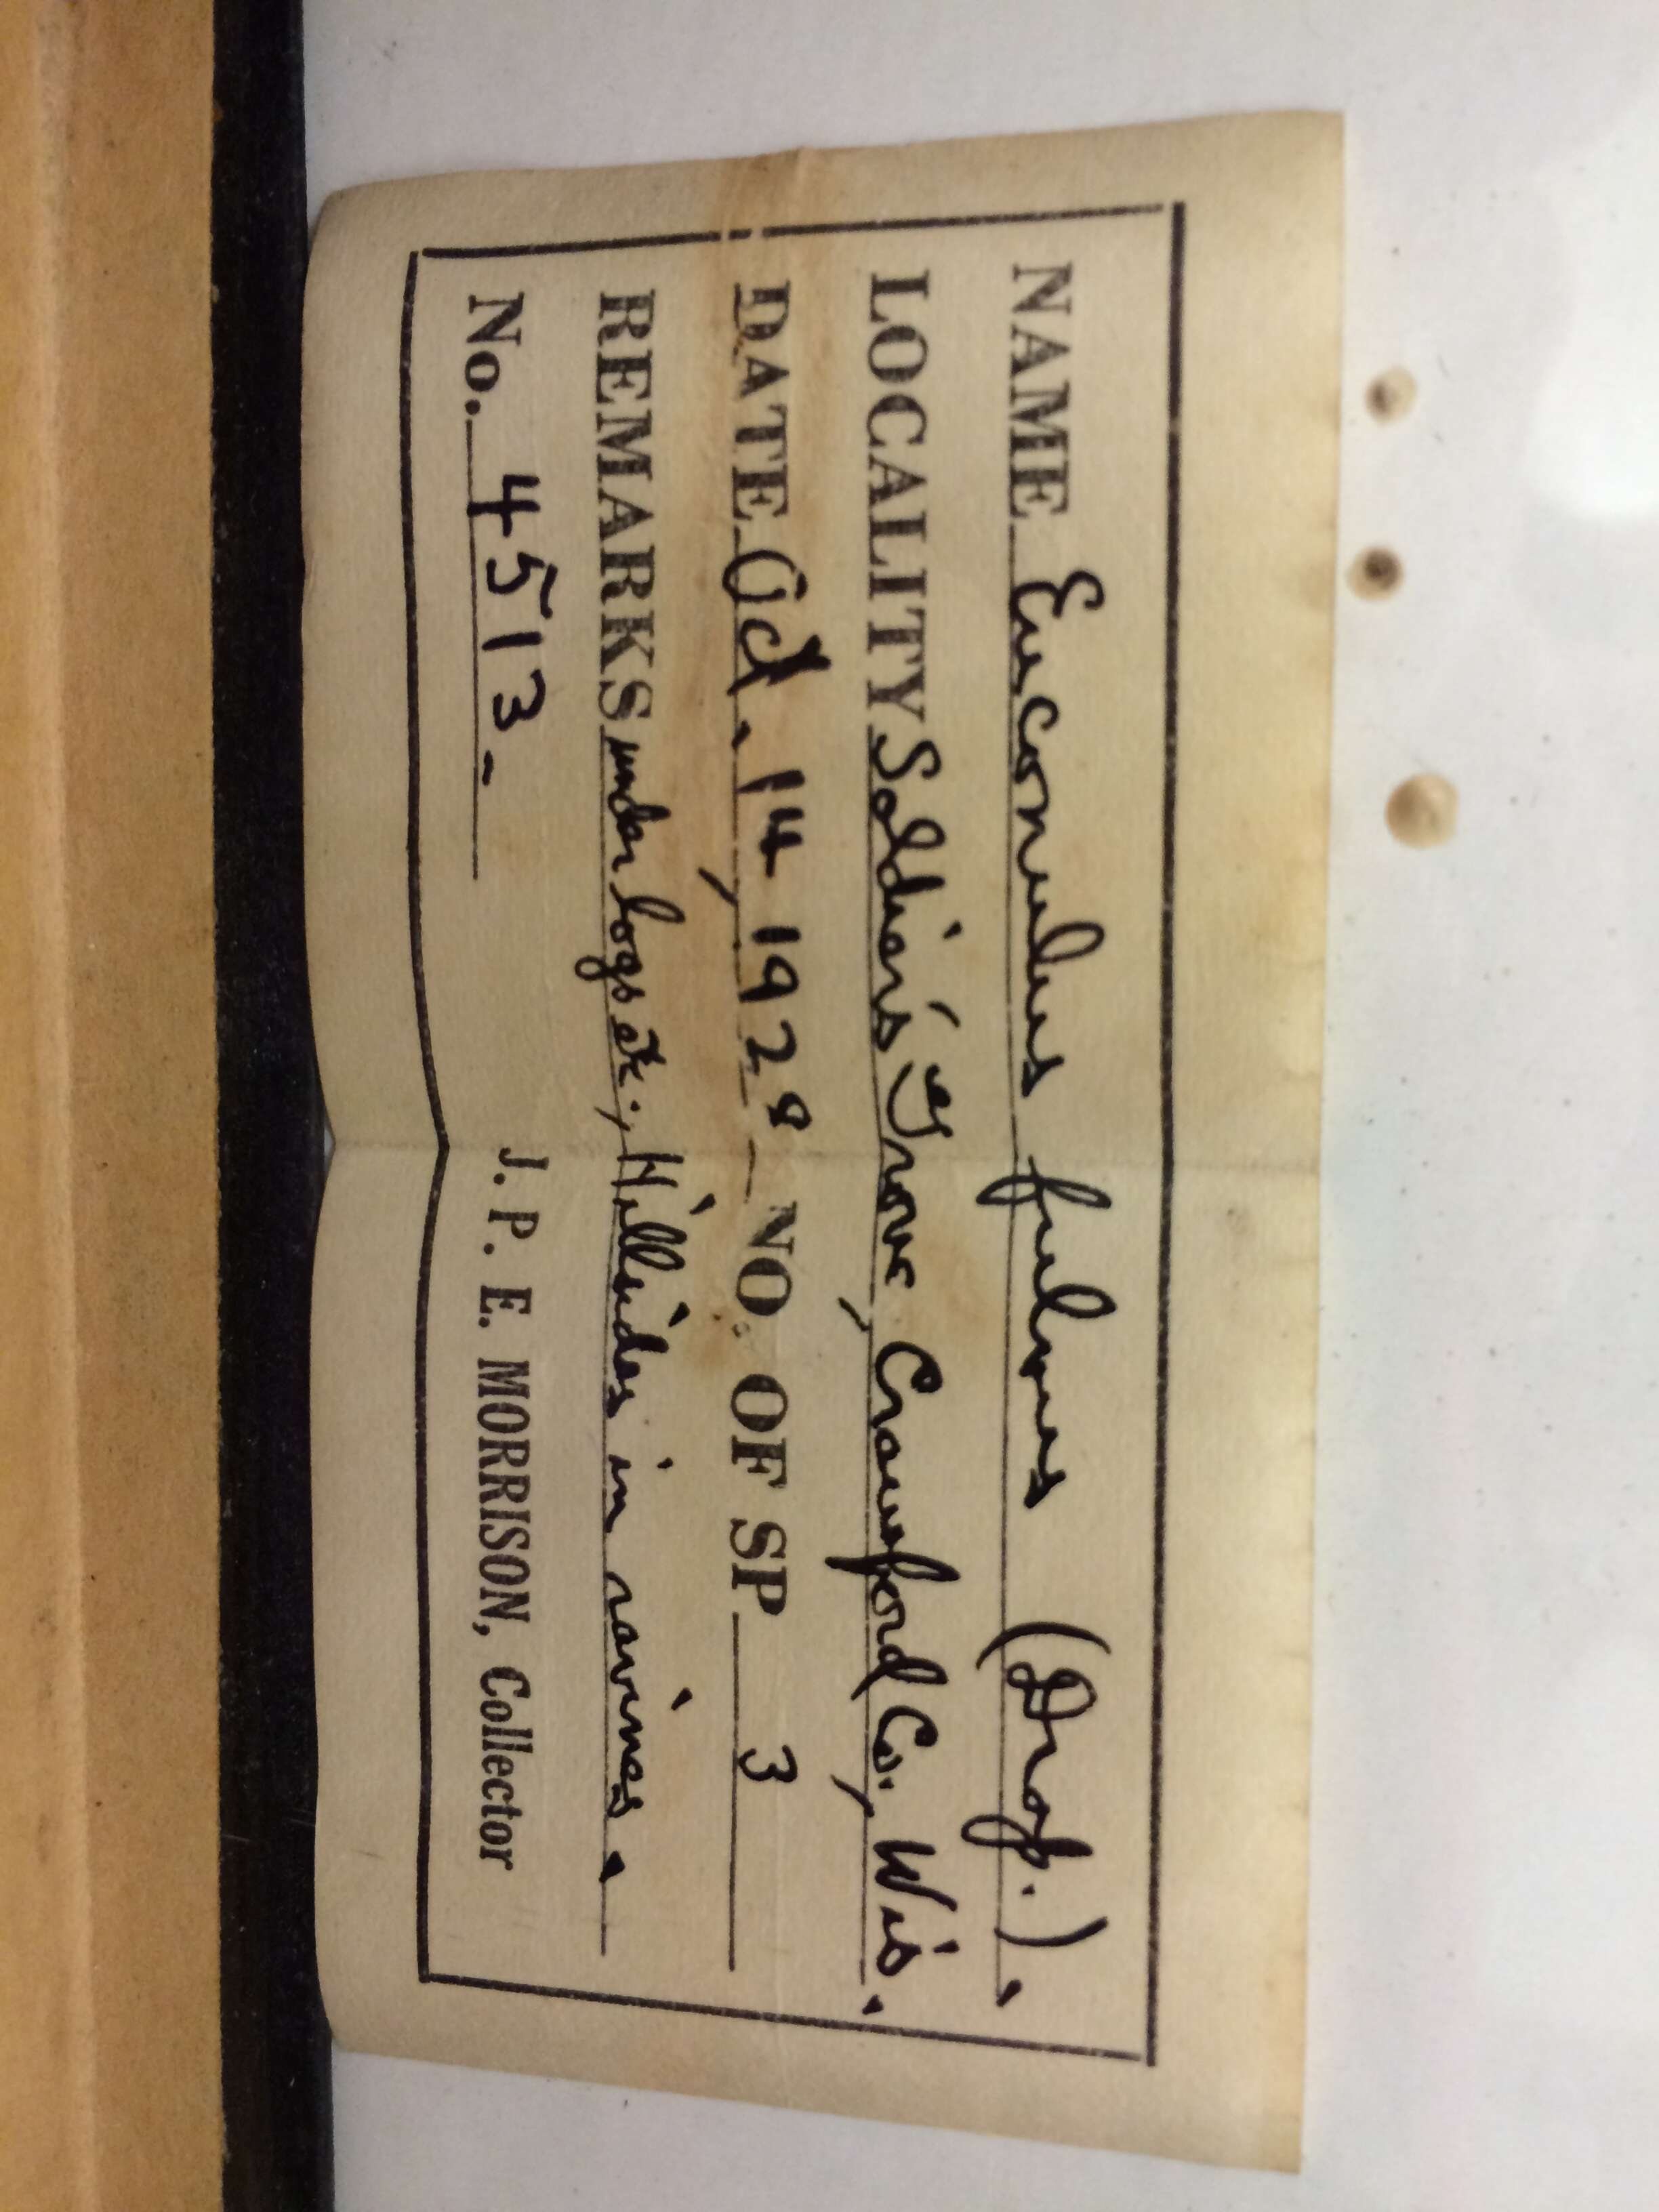 NAME Euconulus fulvus (Drap.).
LOCALITY Soldier's Grove, Crawford Co., Wis.
DATE Oct. 14, 1928 NO. OF SP 3
REMARKS under logs etc., Hillsides in ravines.
No. 4513-
J. P. E. MORRISON, Collector